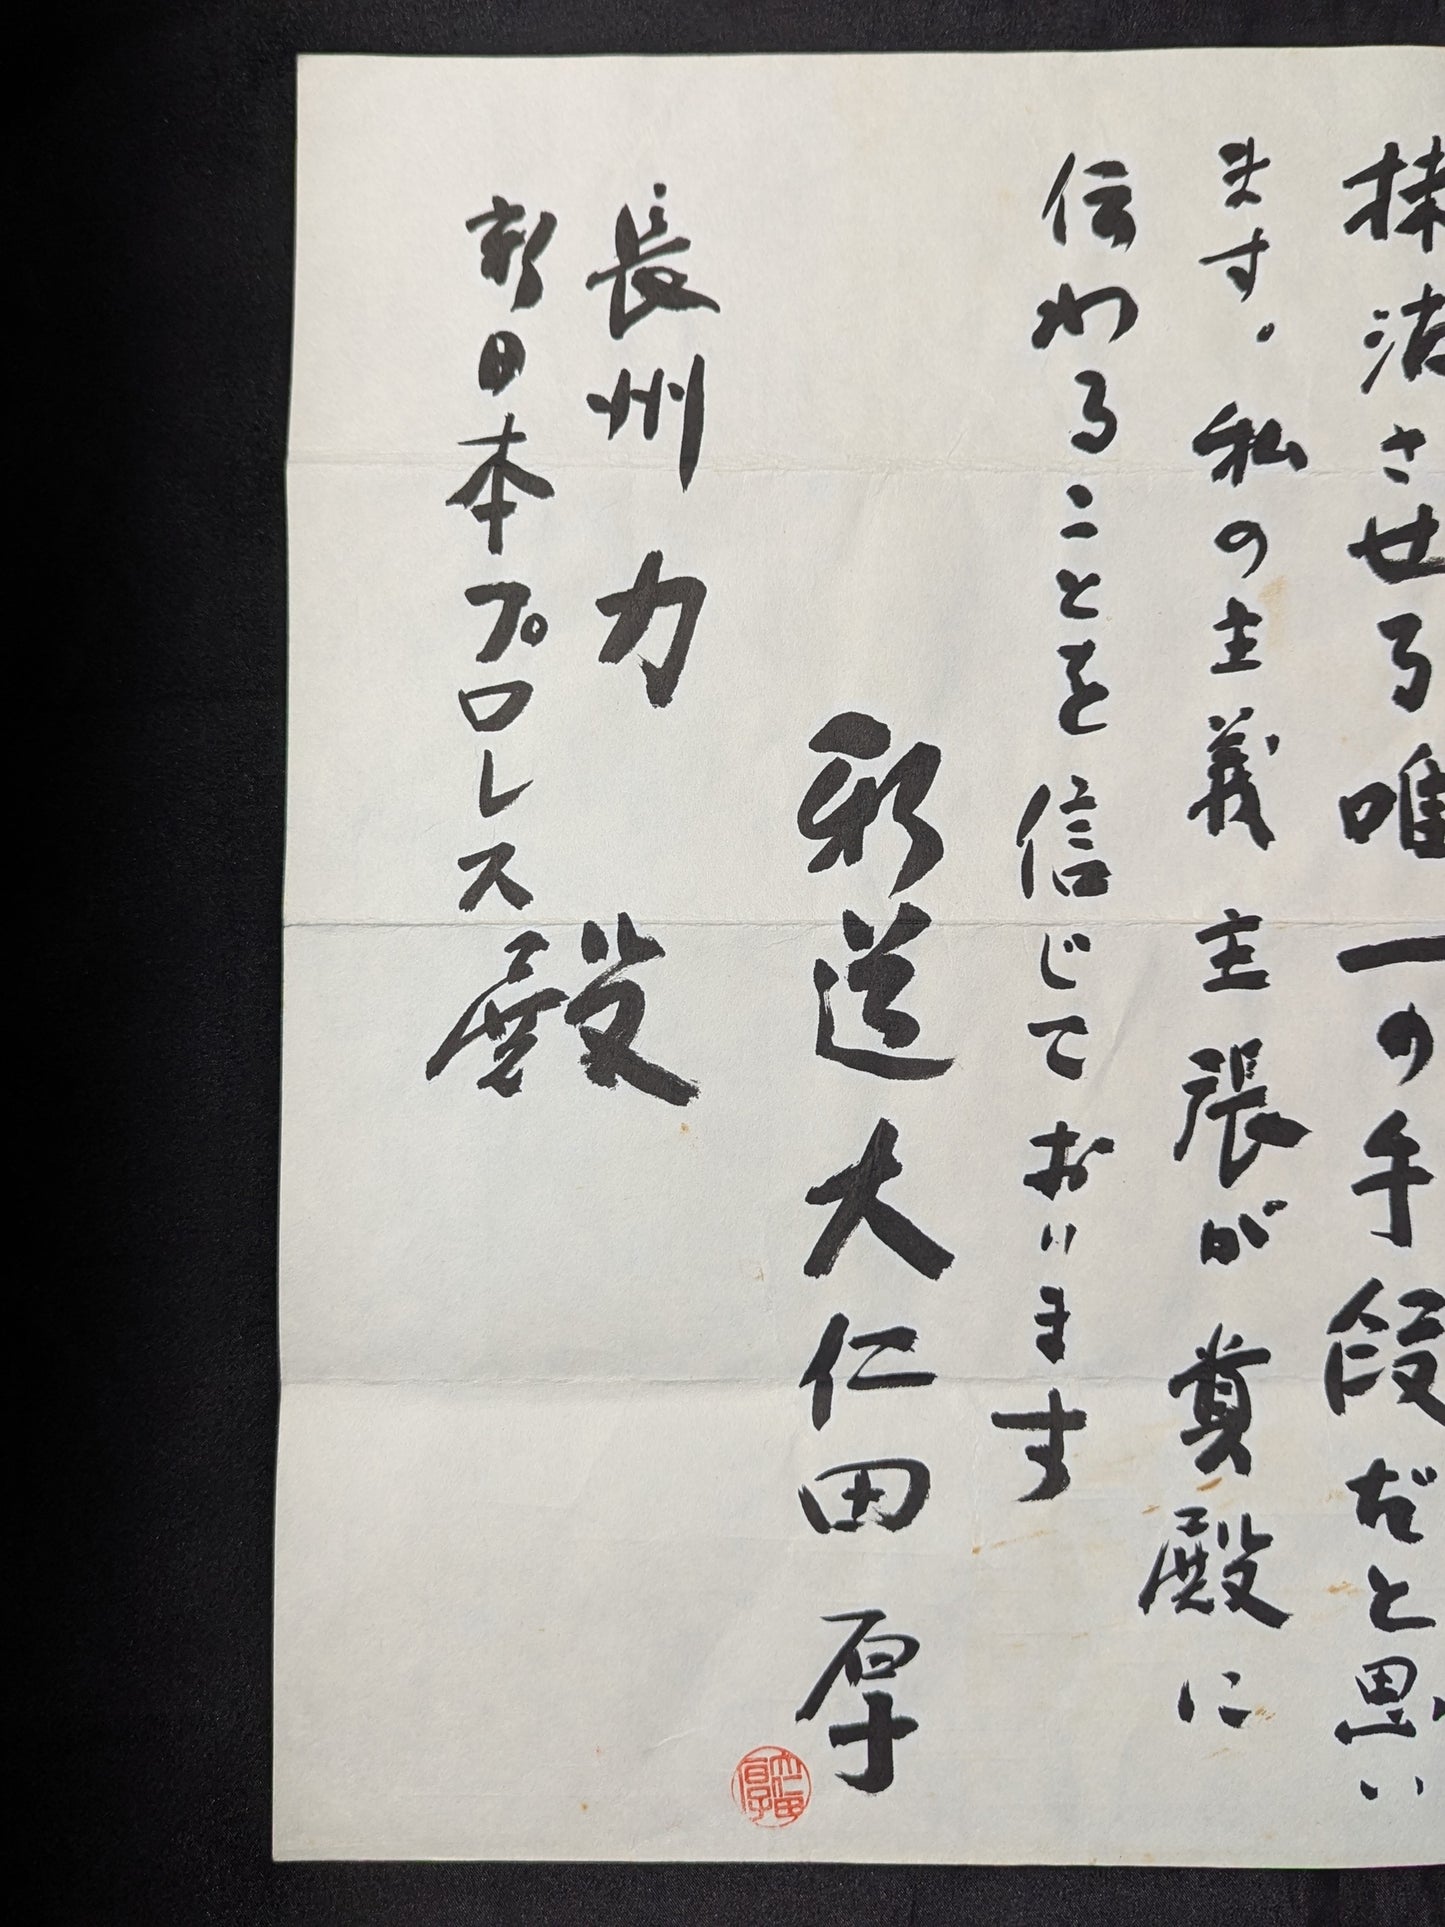 させる唯一の手段だと思い
ます。私の主義主張が貴殿に
伝わることを信じております
邪道 大仁田 厚
大仁田厚
長州 力
新日本プロレス 殿